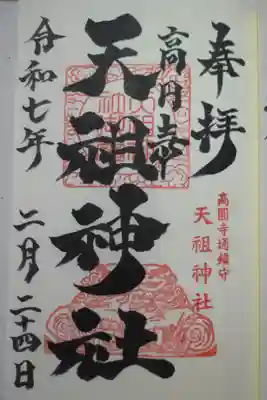 奉拝
高円寺
天祖神社
令和七年 二月二十四日
高圓寺通鎮守
天祖神社